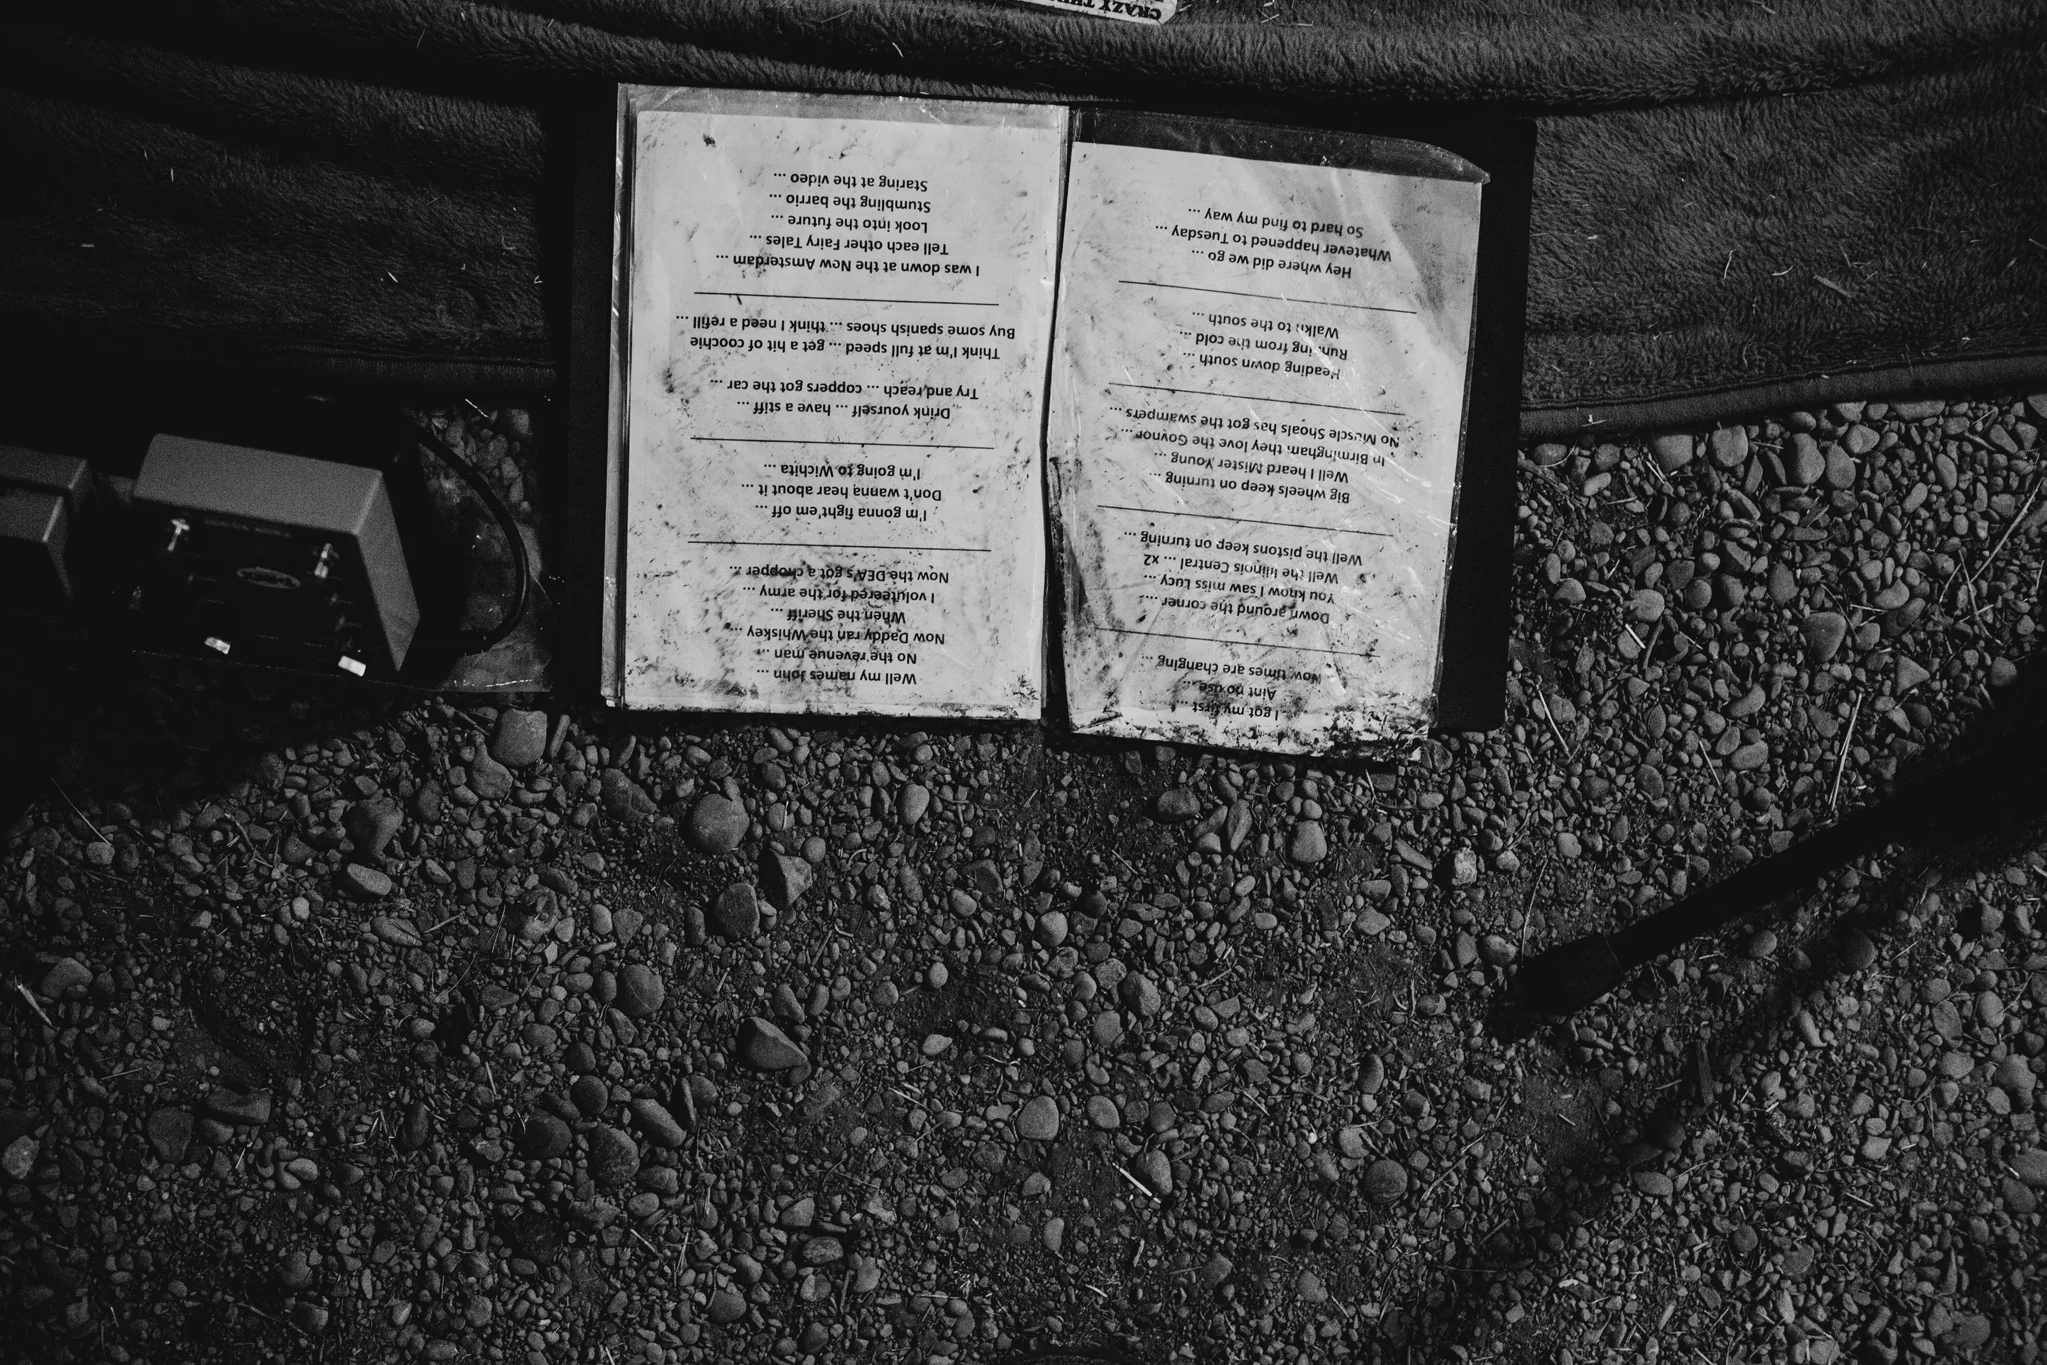 I got my first ...
Aint no use ...
Now times are changing ...
Down around the corner ....
You know I saw miss Lucy ...
Well the Illinois Central ... x2
Well the pistons keep on turning ...
Big wheels keep on turning ...
Well I heard Mister Young ...
In Birmingham, they love the Govnor ...
No Muscle Shoals has got the swampers ...
Heading down south ...
Running from the cold ...
Walkn to the south ...
Hey where did we go ...
Whatever happened to Tuesday ...
So hard to find my way ...
Well my names John ...
No the revenue man ..
Now Daddy ran the Whiskey ...
When the Sheriff ...
I voluteered for the army ...
Now the DEA's got a chopper ...
I'm gonna fight'em off ...
Don't wanna hear about it ...
I'm going to Wichita ...
Drink yourself ... have a stiff ...
Try and reach ... coppers got the car ...
Think I'm at full speed ... get a hit of coochie
Buy some spanish shoes ... think I need a refill ...
I was down at the New Amsterdam ...
Tell each other Fairy Tales ...
Look into the future ...
Stumbling the barrio ...
Staring at the video ...
CRAZY